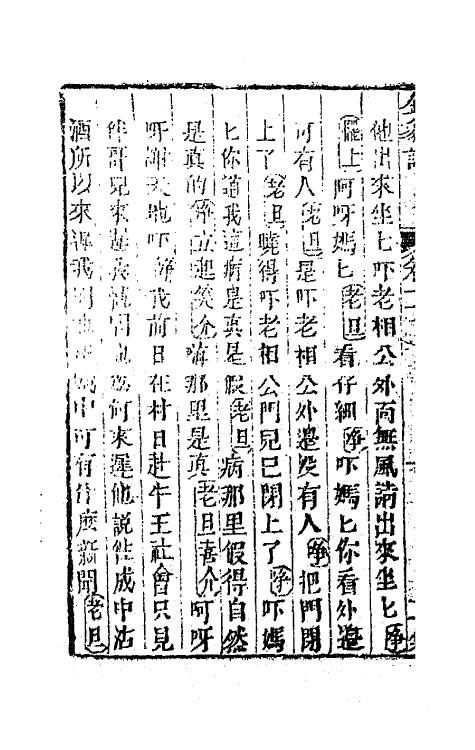 他出來坐匕吓老相公外面無風請出來坐匕淨
上阿呀媽匕老旦看仔細淨吓媽匕你看外邉
可有人老旦是吓老相公外邉沒有人淨把門閉
上了老旦曉得吓老相公門兒已閉上了淨吓媽
匕你道我這病是真是假老旦病那里假得自然
是真的淨立起笑介嗨那里是真老旦喜介阿呀
呀謝天地吓淨我前日在村日赴牛王社會只見
哥兒來何來遲他說徃成中沽
酒所以來遲我問中可有什麽新聞老旦